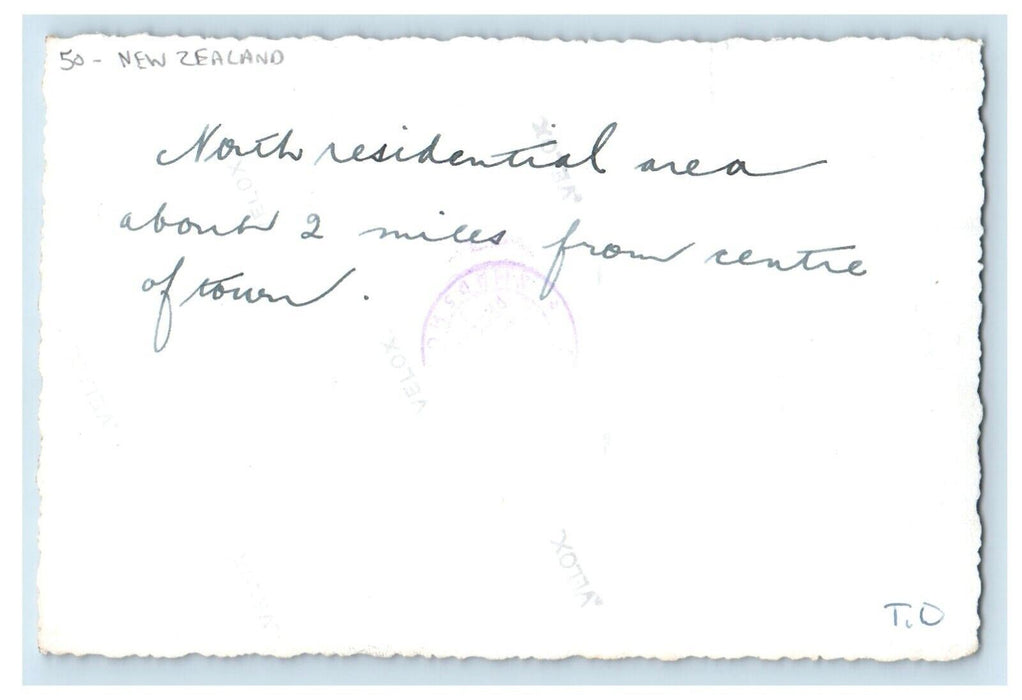 50 - NEW ZEALAND
North residential area
about 2 miles from centre
of town.
VELOX
VELOX
VELOX
VELOX
T.O